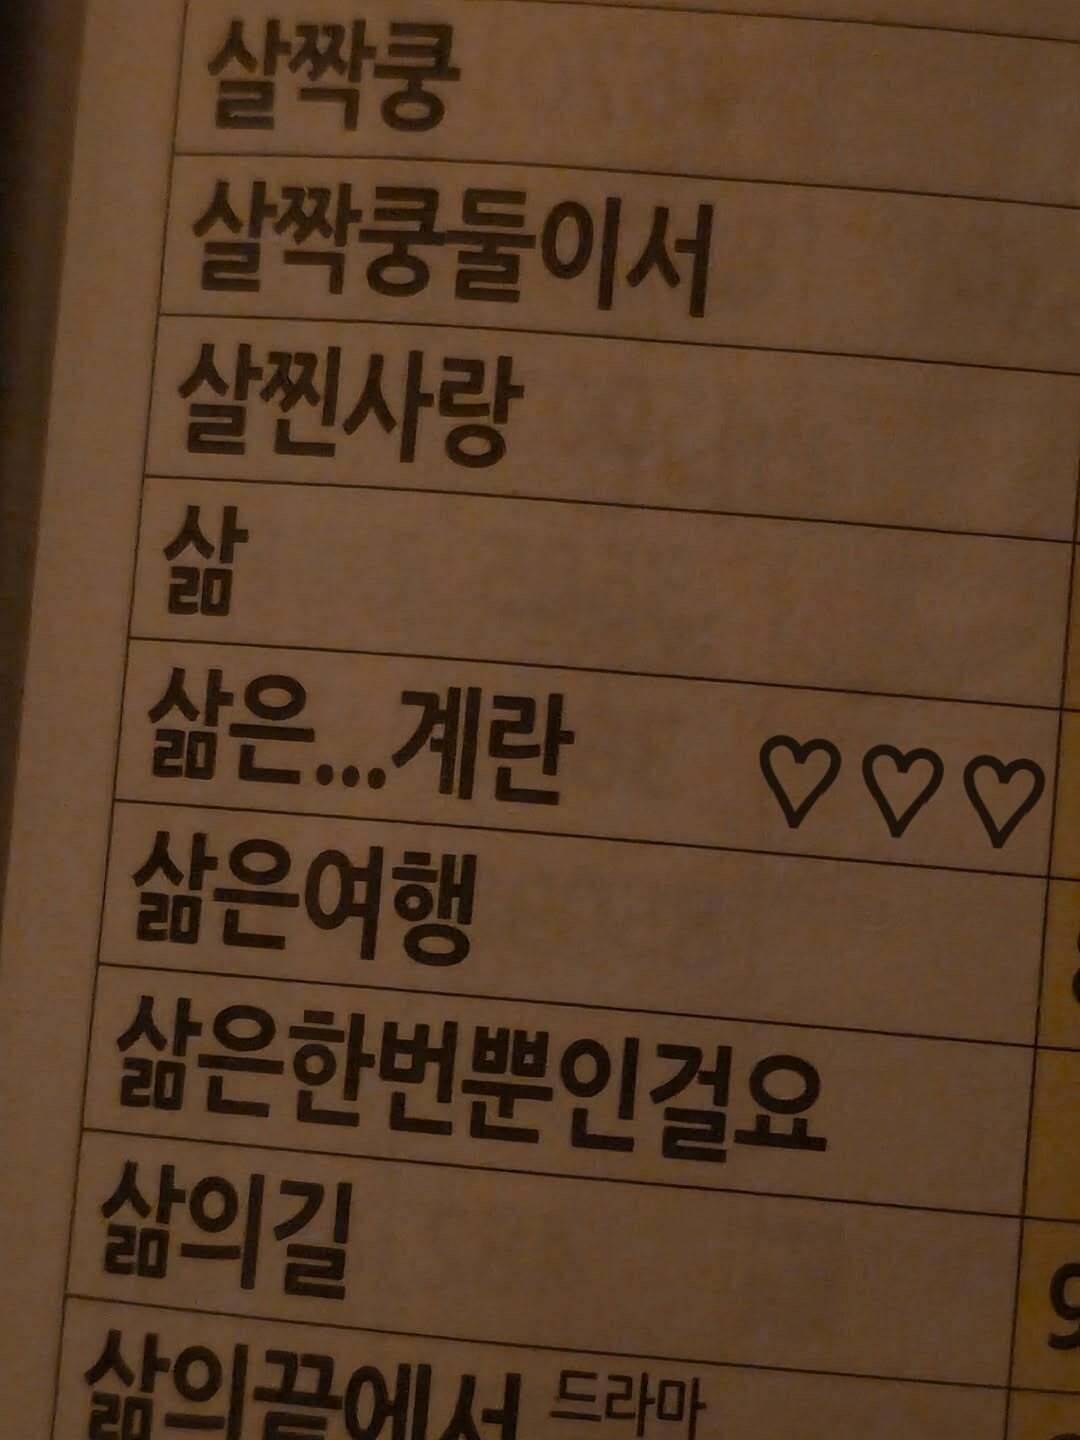 살짝쿵
살짝쿵둘이서
살찐사랑
삶
삶은...계란 ♡♡♡
삶은여행
삶은한번뿐인걸요
삶의길
삶의끝에서 드라마